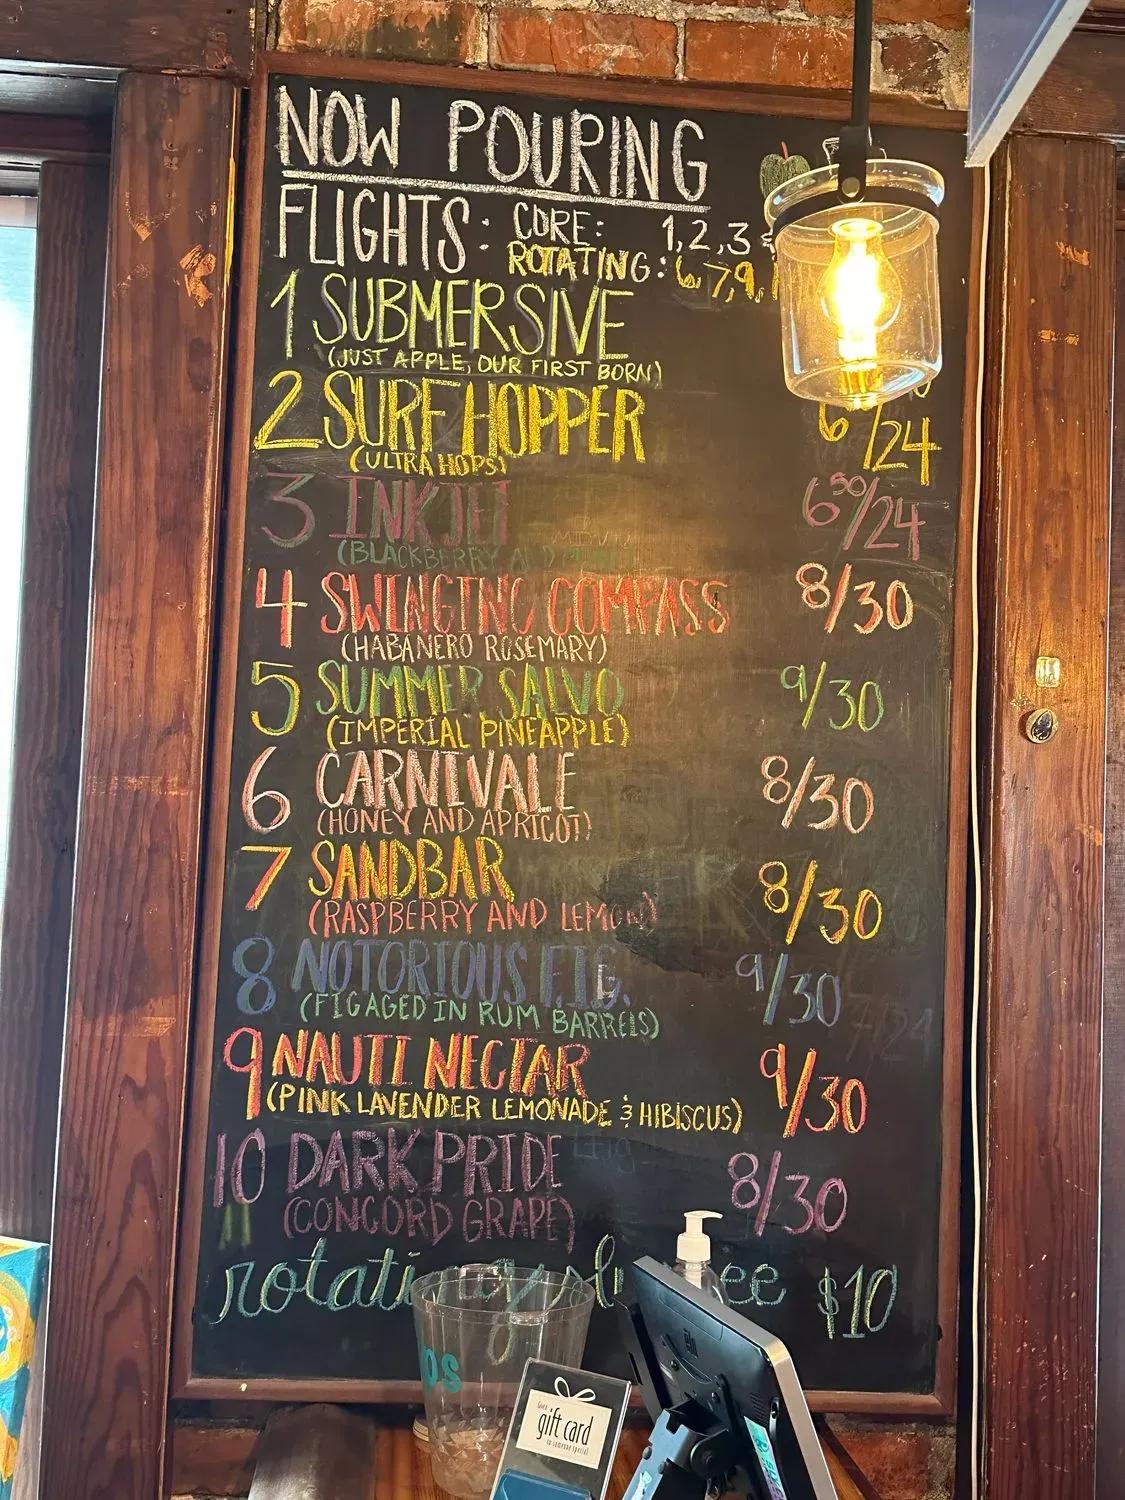 NOW POURING
FLIGHTS: CORE: 1, 2, 3
ROTATING: 6, 7, 9,
1 SUBMERSIVE
(JUST APPLE, OUR FIRST BORN)
2 SURF HOPPER 6/24
(ULTRA HOPS)
3 INKJET 6⁵⁰/24
(BLACKBERRY AND
4 SWINGING COMPASS 8/30
(HABANERO ROSEMARY)
5 SUMMER SALVO 9/30
(IMPERIAL PINEAPPLE)
6 CARNIVALE 8/30
(HONEY AND APRICOT)
7 SANDBAR 8/30
(RASPBERRY AND LEMON)
8 NOTORIOUS F.I.G. 9/30
(FIG AGED IN RUM BARRELS)
9 NAUTI NECTAR 9/30
(PINK LAVENDER LEMONADE & HIBISCUS)
10 DARK PRIDE 8/30
(CONCORD GRAPE)
rotating $10
gift card
to someone special